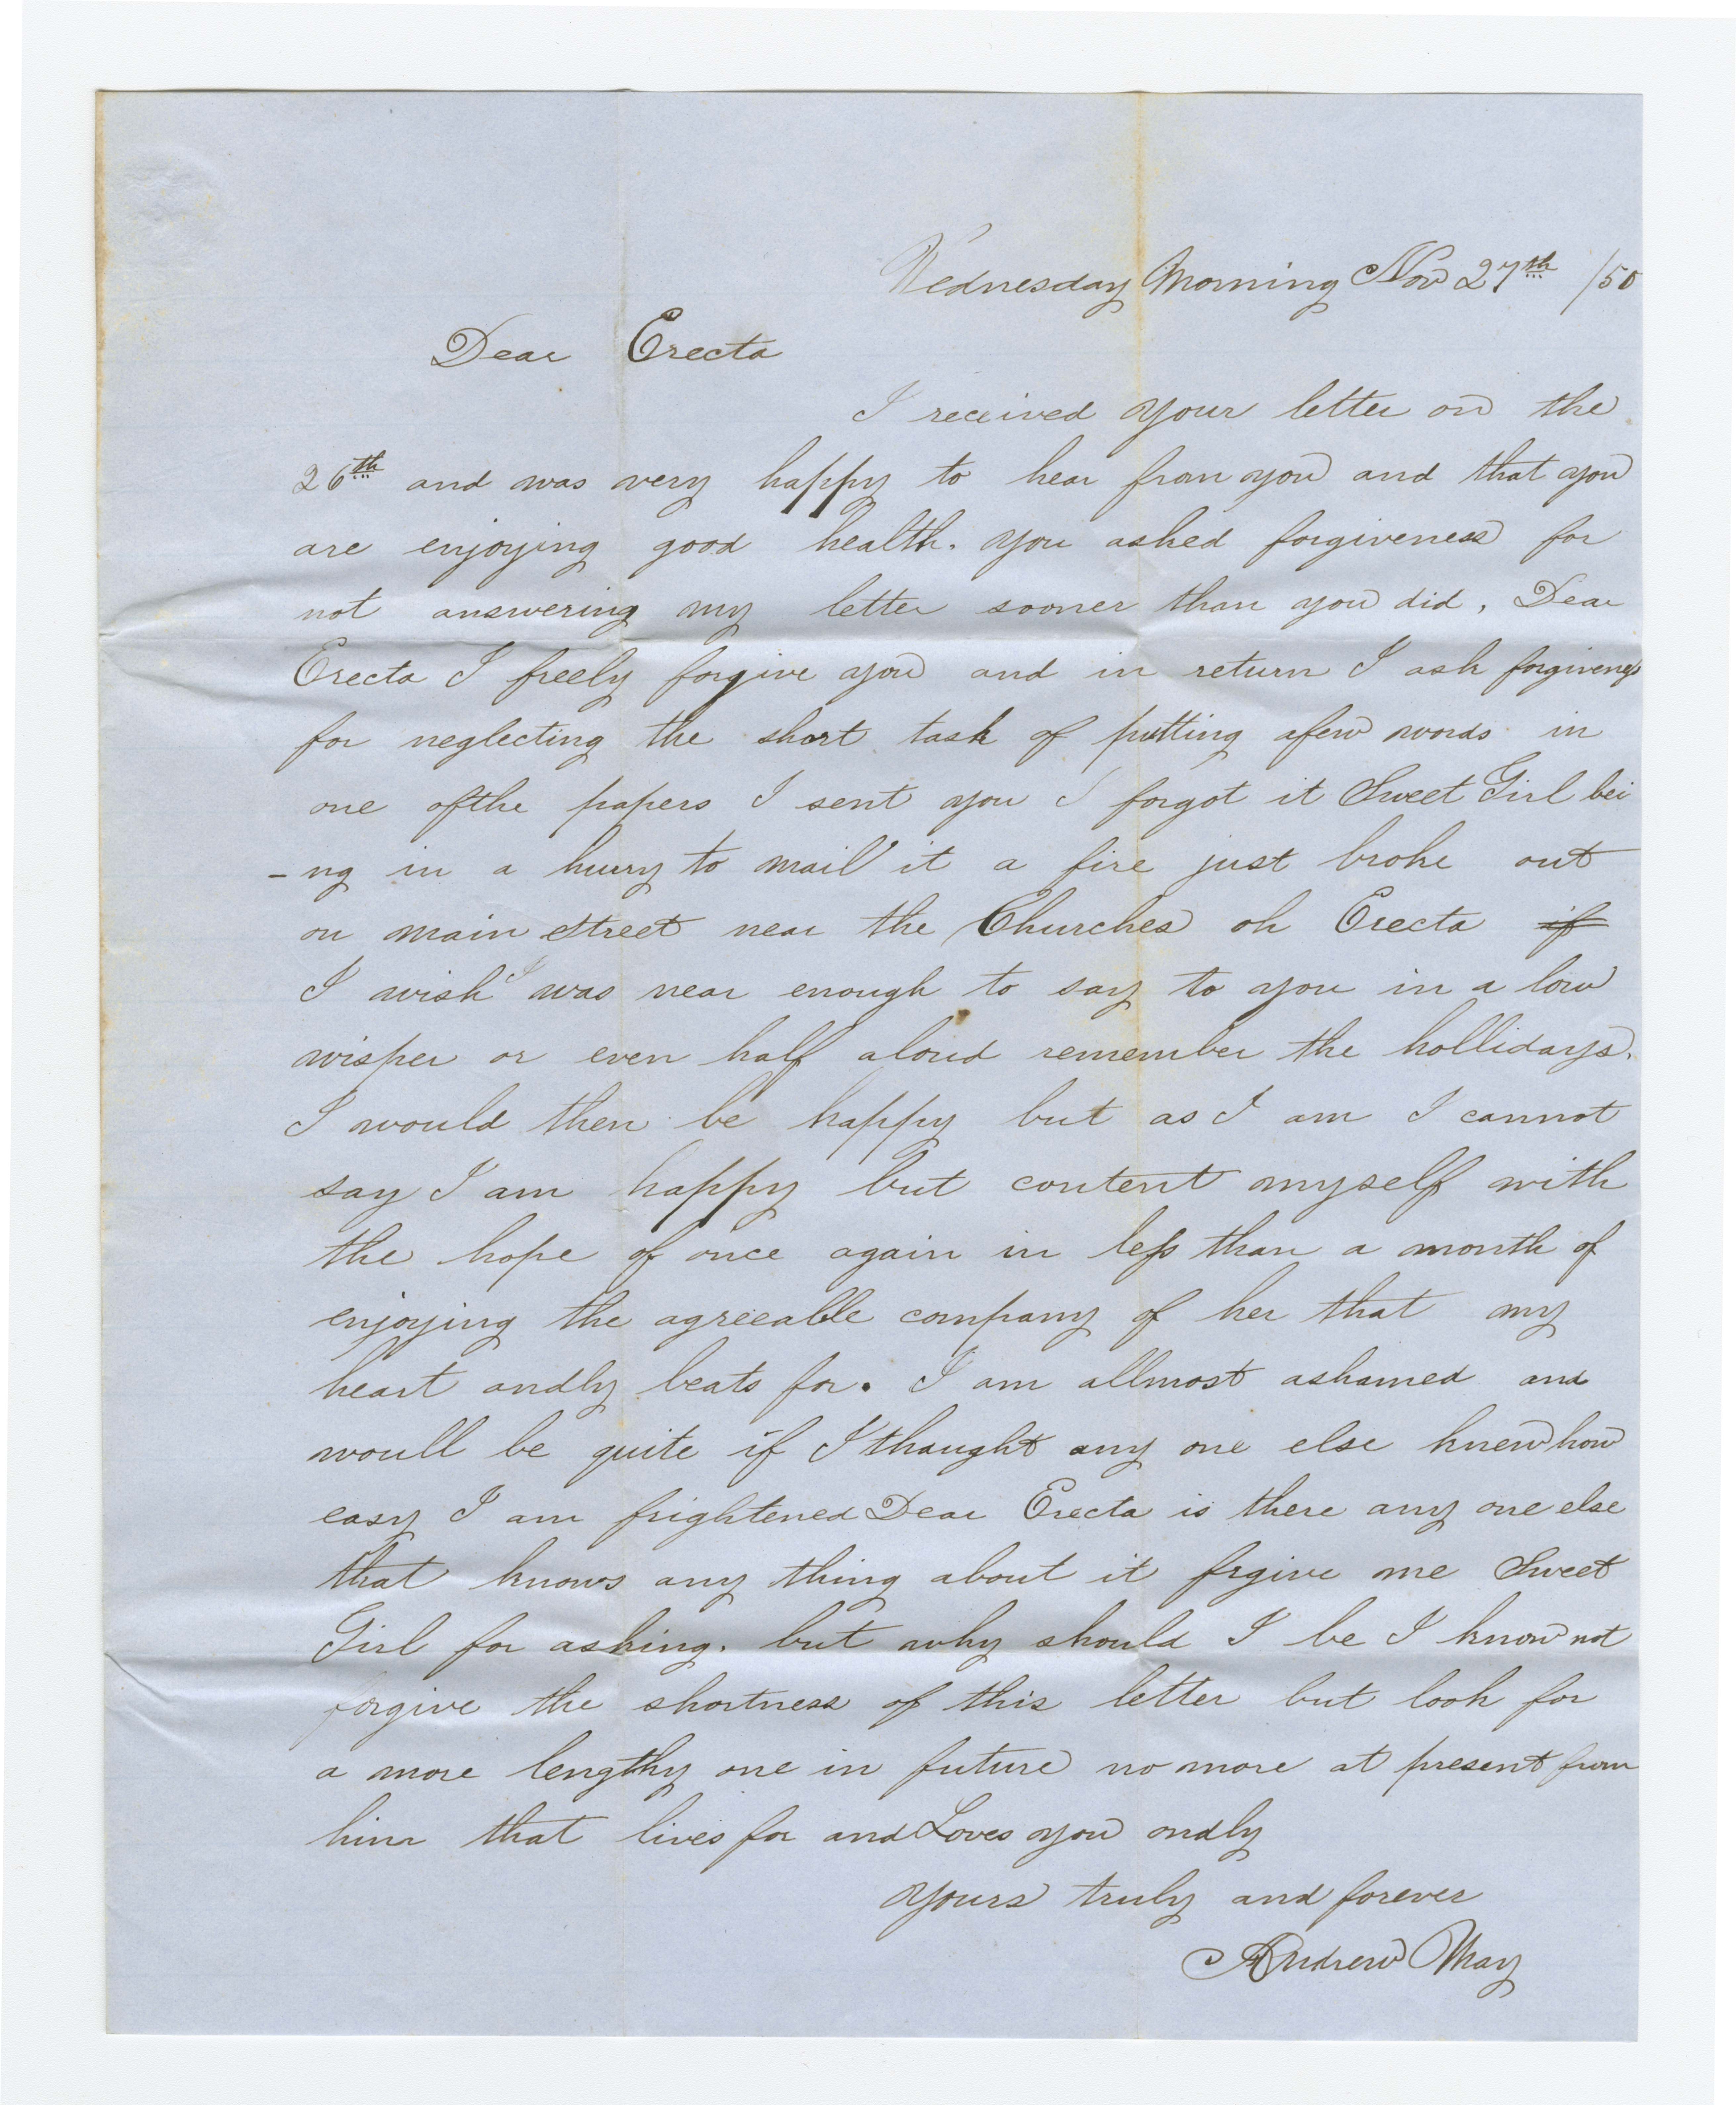 Wednesday Morning Nov 27th /50
Dear Erecta
I received your letter on the
26th and was very happy to hear from you and that you
are enjoying good health. you asked forgiveness for
not answering my letter sooner than you did, Dear
Erecta I freely forgive you and in return I ask forgiveness
for neglecting the short task of putting afew words in
one ofthe papers I sent you I forgot it Sweet Girl bei
-ng in a hurry to mail it a fire just broke out
on main street near the Churches oh Erecta if
I wish I was near enough to say to you in a low
wisper or even half aloud remember the hollidays.
I would then be happy but as I am I cannot
say I am happy but content myself with
the hope of once again in less than a month of
enjoying the agreeable company of her that my
heart ondly beats for. I am allmost ashamed and
woull be quite if I thought any one else knew how
easy I am frightened Dear Erecta is there any one else
that knows any thing about it frgive me Sweet
Girl for asking. but why should I be I know not
forgive the shortness of this letter but look for
a more lengthy one in future no more at present from
him that lives for and Loves you ondly
yours truly and forever
Andrew May